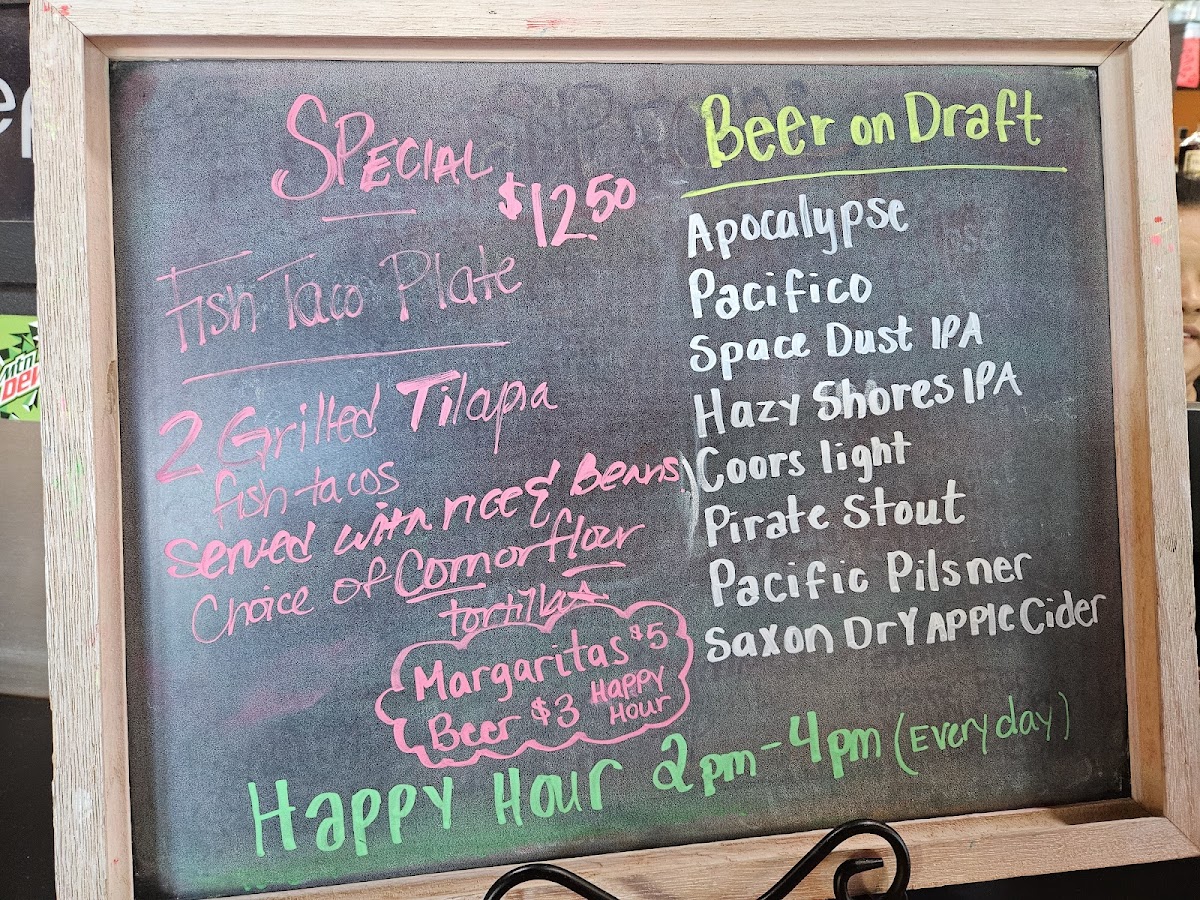 Special
$12.50
Fish Taco Plate
2 Grilled Tilapia
fish tacos
Served with rice & Beans
Choice of Corn or flour
tortillas
Margaritas $5
Beer $3 Happy
Hour
Beer on Draft
Apocalypse
Pacifico
Space Dust IPA
Hazy Shores IPA
Coors light
Pirate Stout
Pacific Pilsner
Saxon Dry Apple Cider
Happy Hour 2pm-4pm (Every day)
mtn
DEW